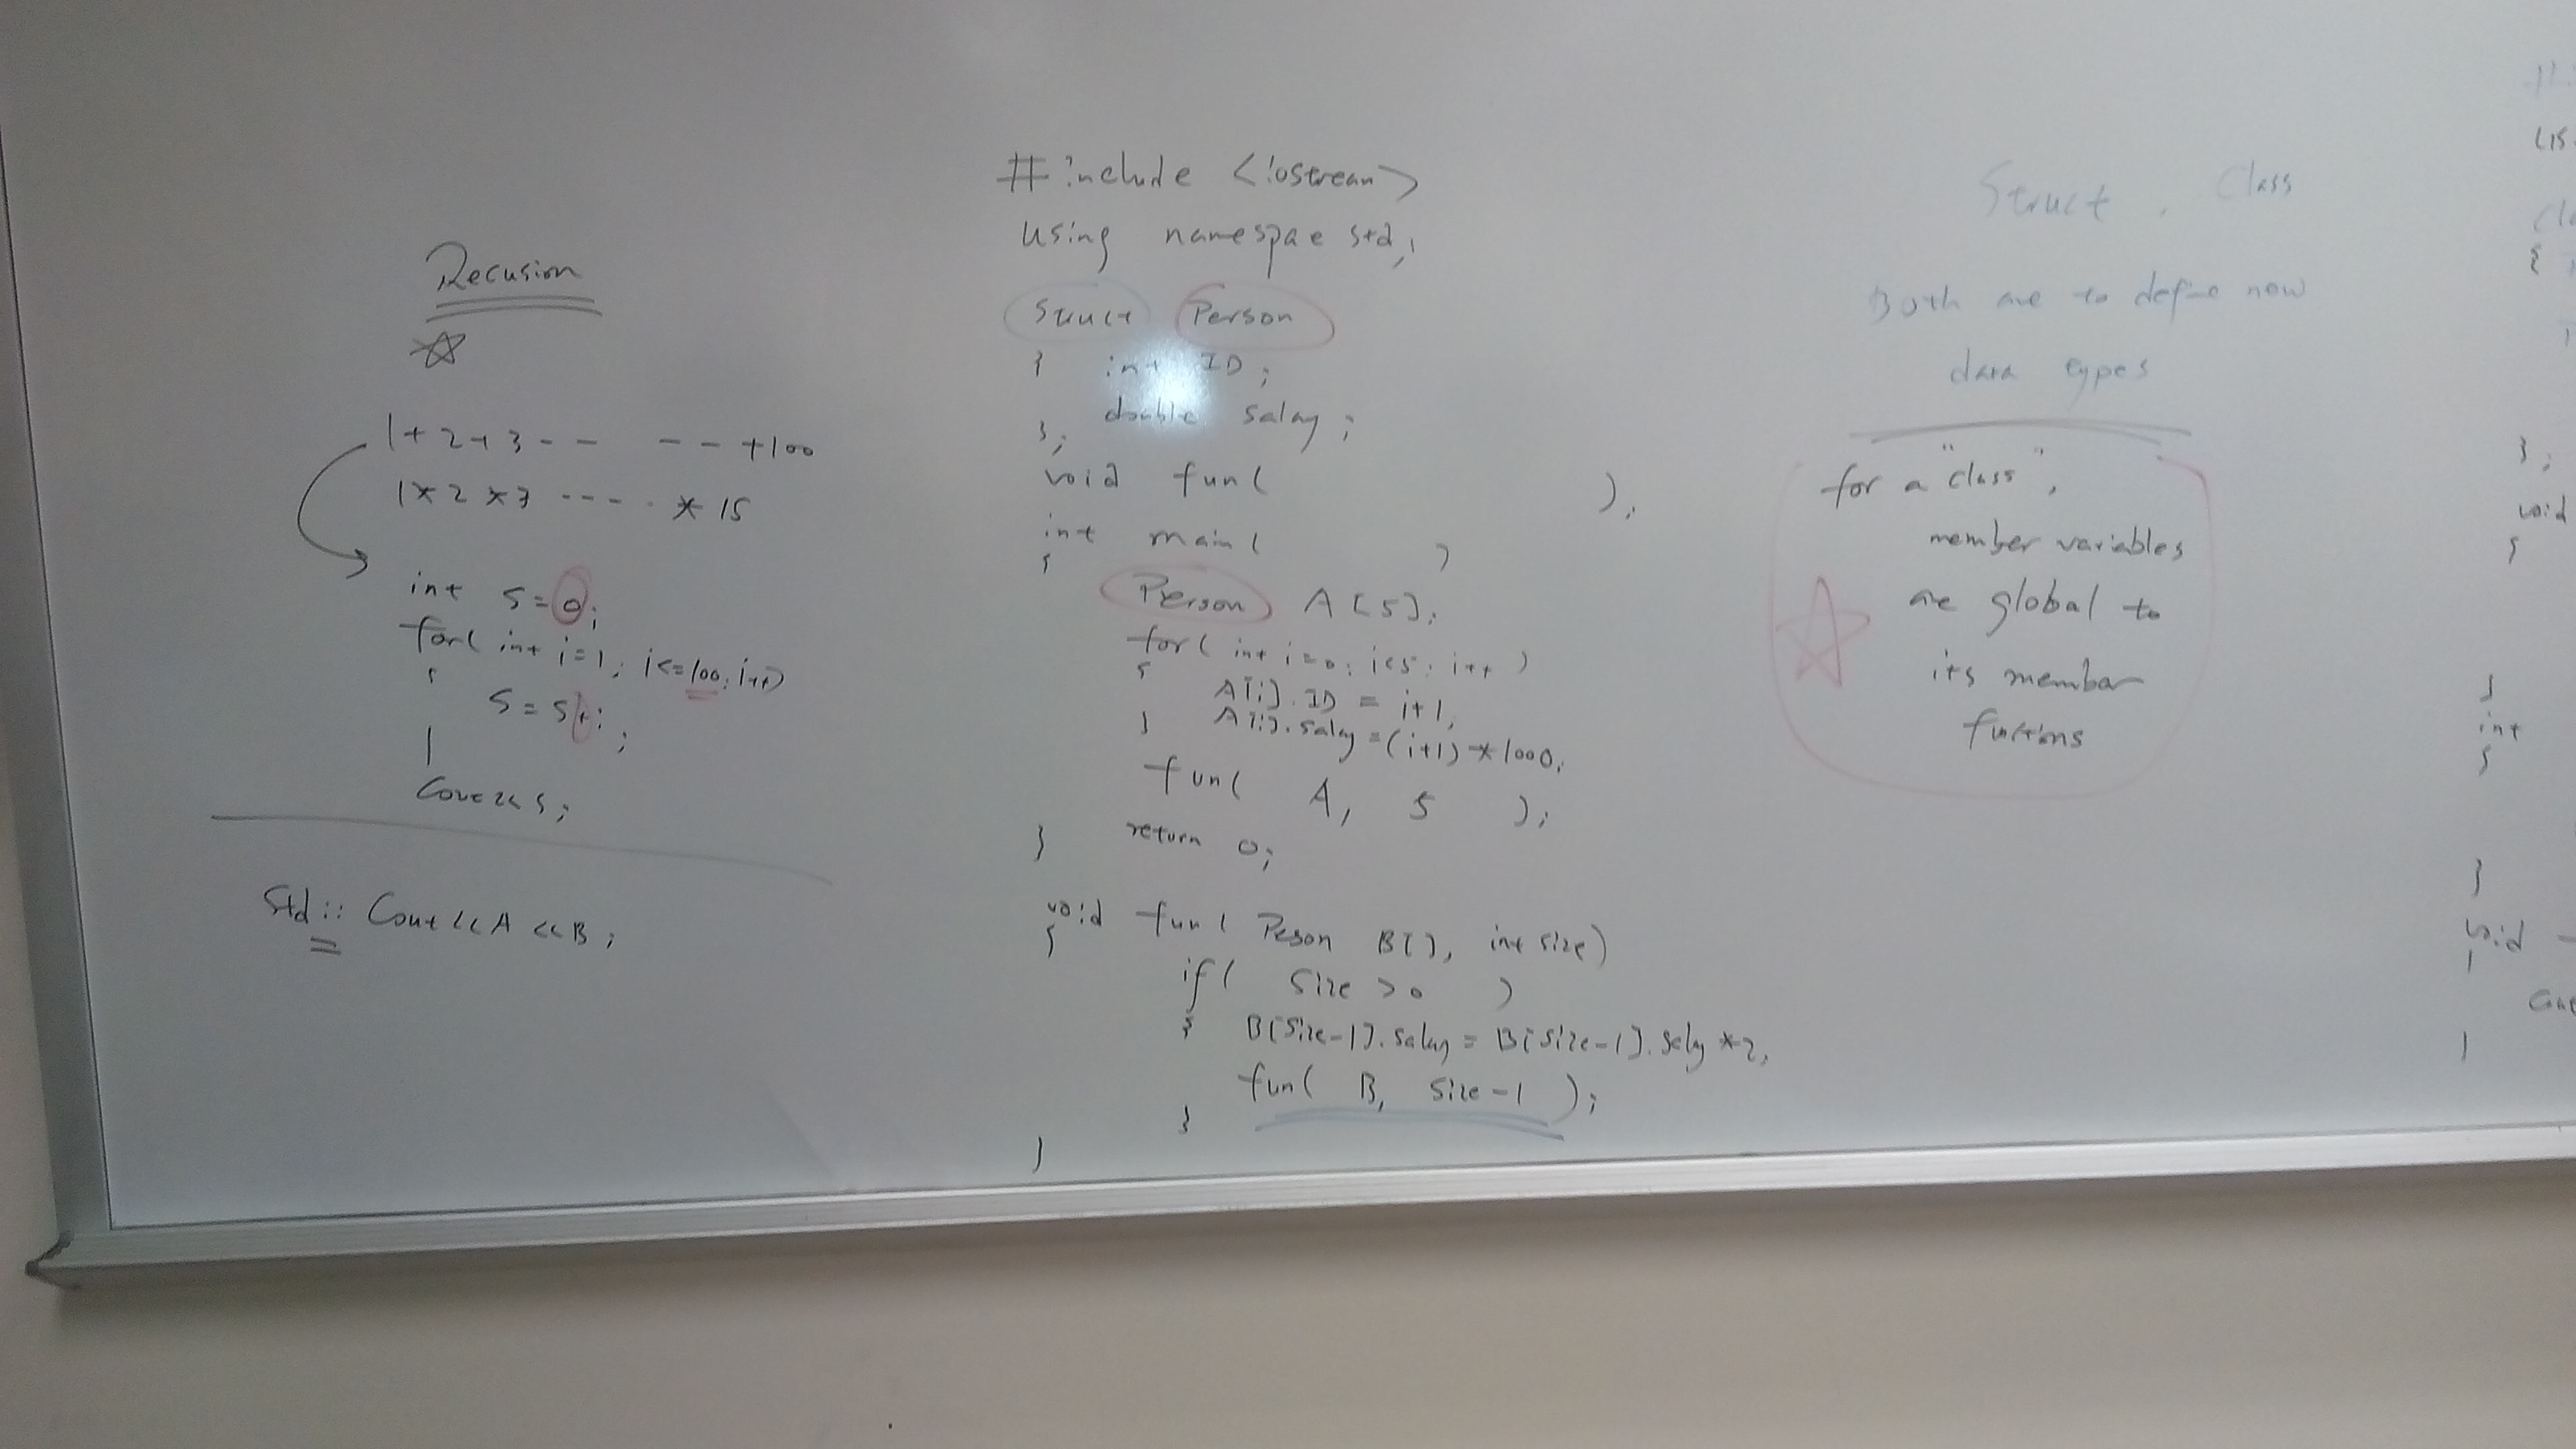 Recusion
1+2+3-- --+100
1*2*3 ---- * 15
int S=0;
for( int i=1; i<=100; i++)
{
S=S+i;
}
Cout<<S;
Std:: Cout<<A<<B;
#include <iostream>
using namespae std;
Struct Person
{ int ID;
double Salay;
};
void fun( );
int main( )
{
Person A[5];
for( int i=0; i<5; i++ )
{
A[i].ID = i+1;
A[i].Salay=(i+1)*1000;
}
fun( A, 5 );
return 0;
}
void fun( Peson B[], int size)
{
if( Size>0 )
{ B[Size-1].Salay = B[Size-1].Saly *2;
fun( B, Size-1 );
}
}
Struct, Class
Both are to define new
data types
for a "class",
member variables
are global to
its member
functions
{
};
void
{
}
int
{
}
void
{
}